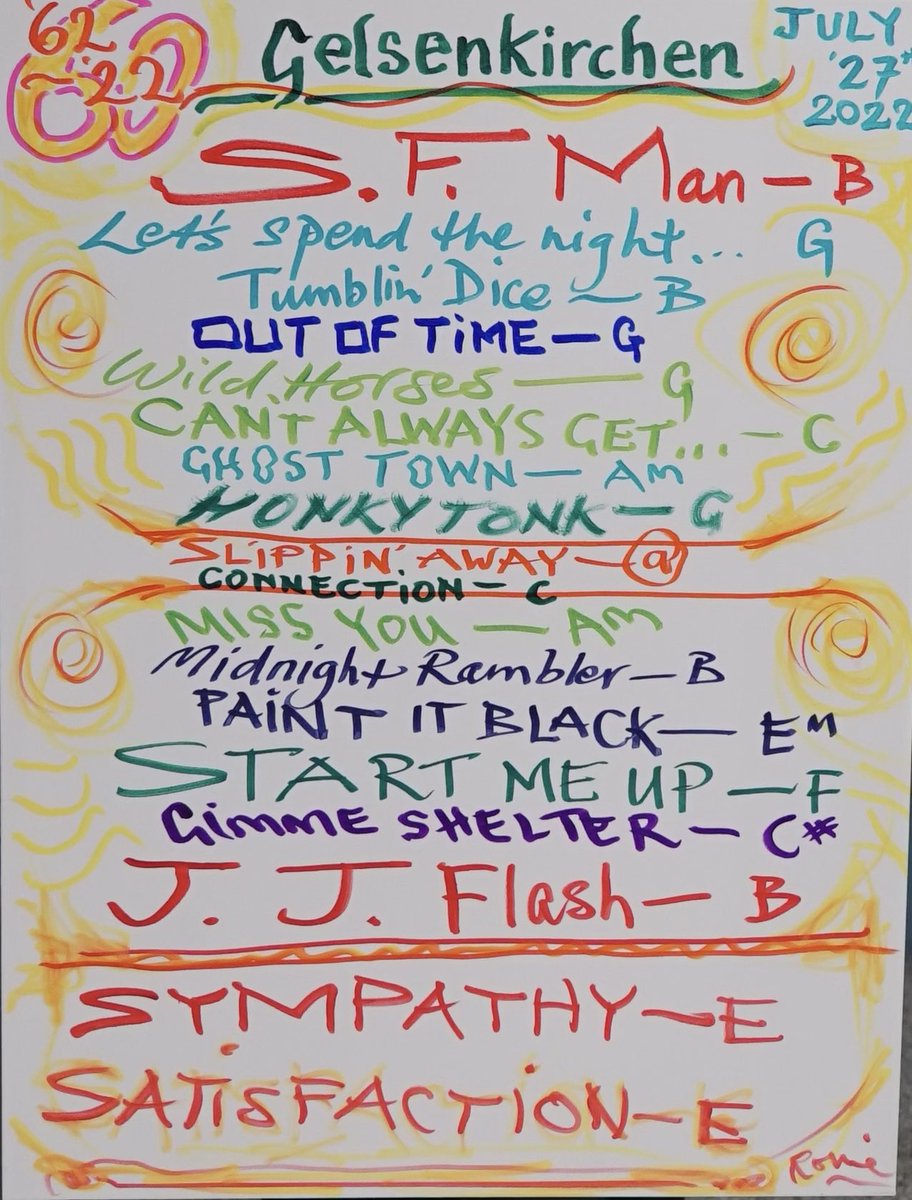 '62
- '22
Gelsenkirchen
JULY
'27th
2022
S.F. Man - B
Let's spend the night... G
Tumblin' Dice - B
OUT OF TiME - G
Wild Horses - G
CANT ALWAYS GET... - C
GHOST TOWN - Am
HONKY TONK - G
SLiPPiN' AWAY - @
CONNECTiON - C
MISS YOU - Am
Midnight Rambler - B
PAiNT IT BLACK - Em
START ME UP - F
GiMME SHELTER - C#
J. J. Flash - B
SYMPATHY - E
SATiSFACTiON - E
Ronnie